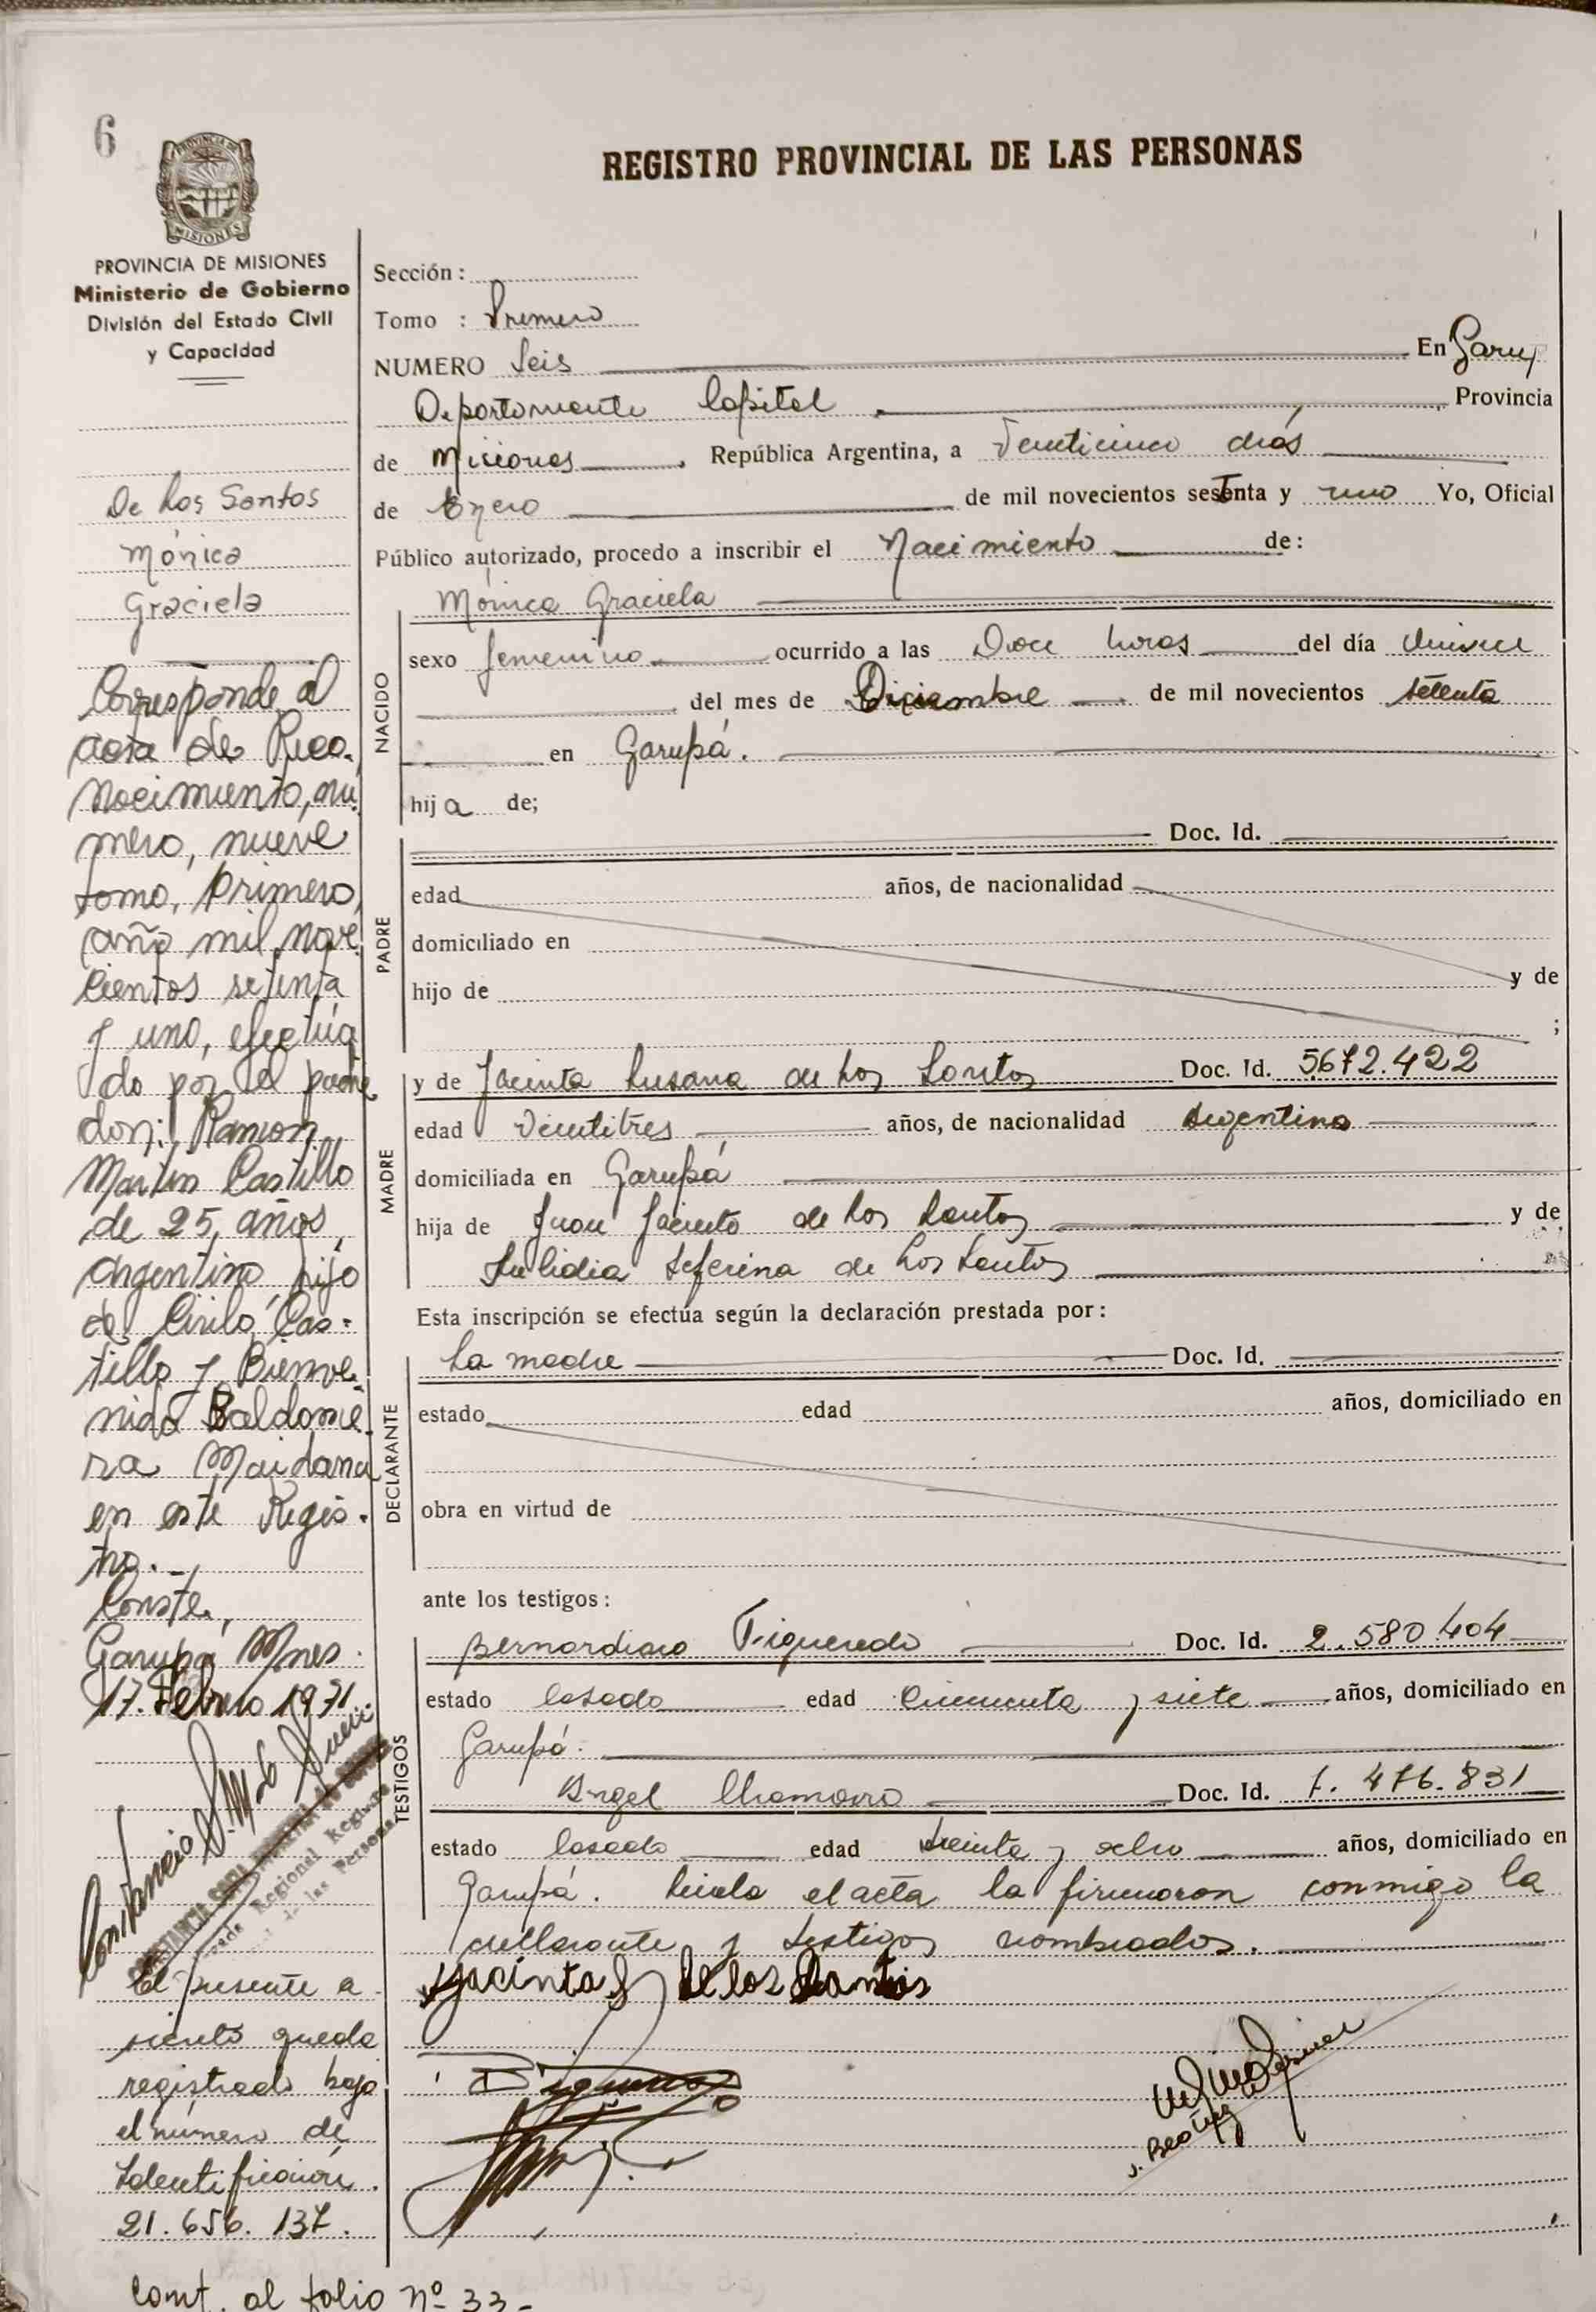 6
REGISTRO PROVINCIAL DE LAS PERSONAS
PROVINCIA DE MISIONES
Ministerio de Gobierno
División del Estado Civil
y Capacidad
De Los Santos
Mónica
Graciela
Corresponde al
acta de Reco-
nocimiento, nú
mero, nueve
tomo, primero,
año mil nove
cientos setenta
y uno, efectúa
do por el padre
don: Ramon
Martin Castillo
de 25, años,
argentino, hijo
de Cirilo Cas-
tillo y Bienve-
nida Baldome
ra Maidana
en este Regis-
tro.-
Conste,
Garupá Mnes.
17. Febrero 1971
Regional Registro
de las Personas
El presente a-
siento queda
registrado bajo
el número de
Identificación.
21.656.137.
Cont. al folio nº 33-
Sección:
Tomo : Primero
NUMERO Seis En Garup
Departamento Capital . Provincia
de Misiones . República Argentina, a Veinticinco días
de Enero de mil novecientos sesTenta y uno Yo, Oficial
Público autorizado, procedo a inscribir el Nacimiento de:
NACIDO
Mónica Graciela
sexo femenino ocurrido a las Doce horas del día Quince
del mes de Diciembre . de mil novecientos setenta
en Garupá.
hija de;
PADRE
Doc. Id.
edad años, de nacionalidad
domiciliado en
hijo de y de
;
MADRE
y de Jacinta Susana de Los Santos Doc. Id. 5.672.422
edad veintitres años, de nacionalidad Argentina
domiciliada en Garupá
hija de Juan Jacinto de Los Santos y de
Seferina de Los Santos
Esta inscripción se efectúa según la declaración prestada por:
DECLARANTE
La madre Doc. Id.
estado edad años, domiciliado en
obra en virtud de
ante los testigos:
TESTIGOS
Bernardino Figueredo Doc. Id. 2.580.404
estado casado edad cincuenta y siete años, domiciliado en
Garupá.
Angel Chamorro Doc. Id. 7.476.831
estado casado edad treinta y ocho años, domiciliado en
Garupá. Leída el acta la firmaron conmigo la
declarante y testigos nombrados.
Jacinta S de los Santos